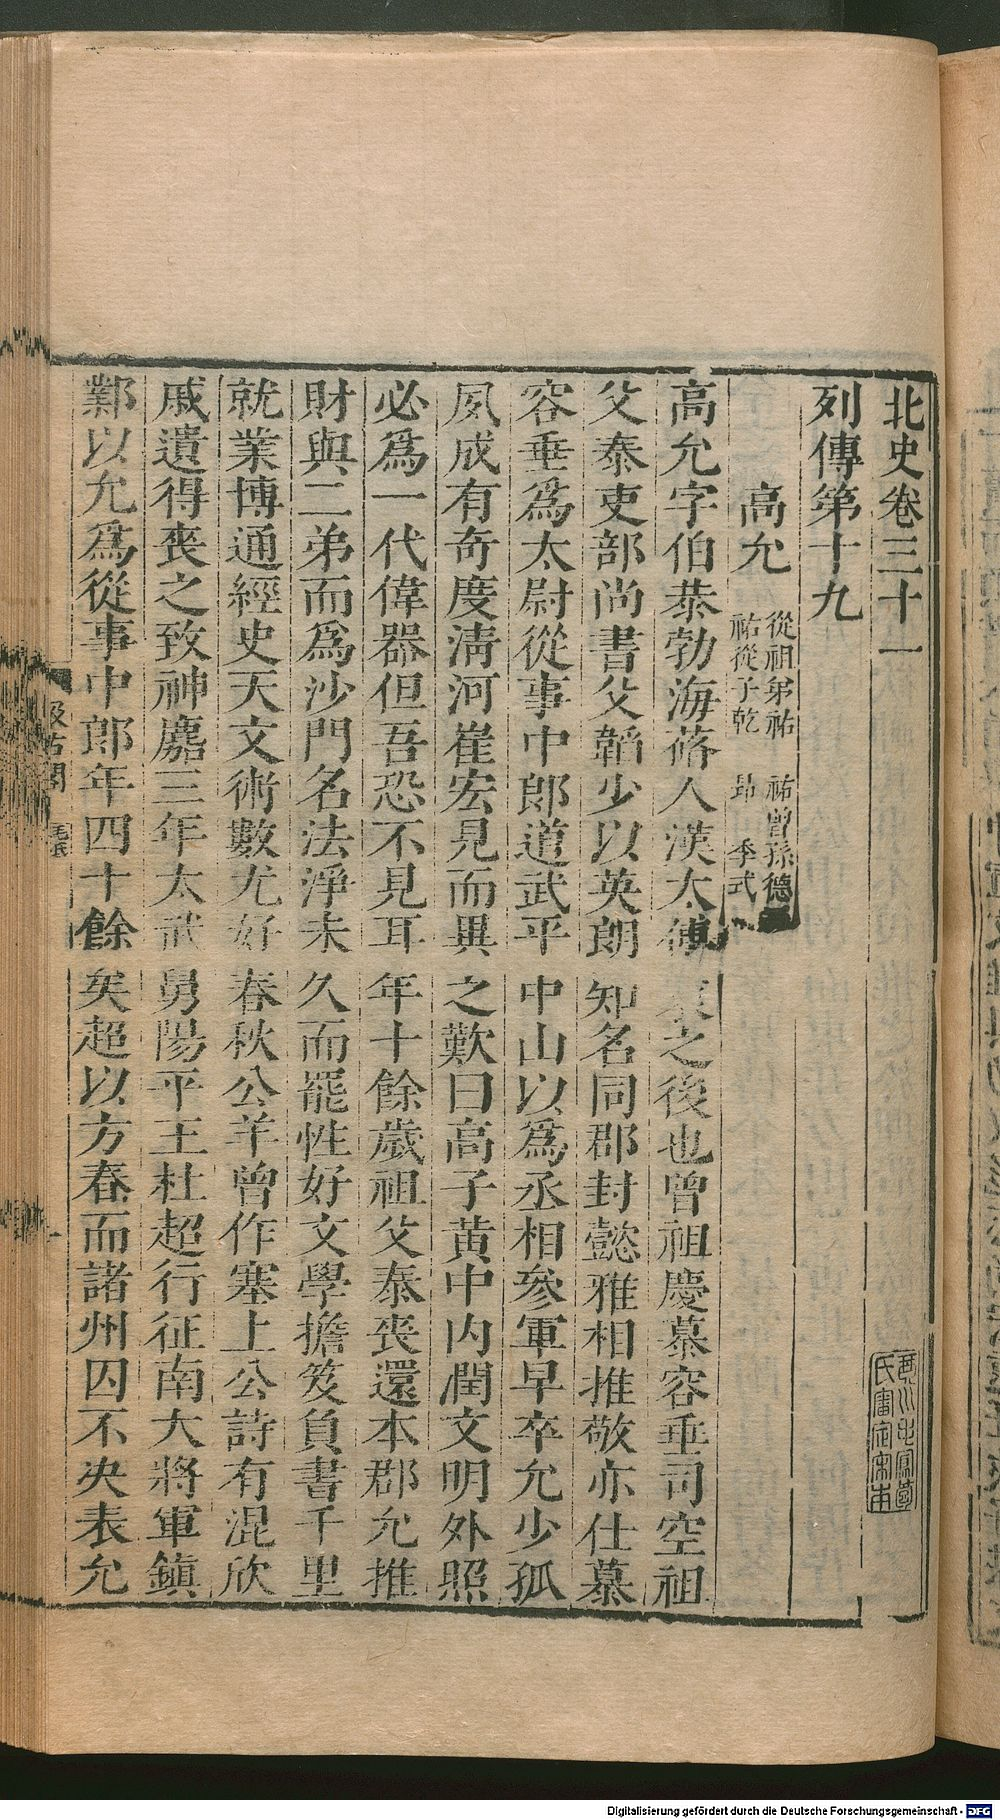 北史卷三十一
列傳第十九
高允 從祖弟祐 祐曾孫德
祐從子乾 昻 季式
高允字伯恭勃海蓨人漢太傅裒之後也曾祖慶慕容垂司空祖
父泰吏部尚書父韜少以英朗知名同郡封懿雅相推敬亦仕慕
容垂爲太尉從事中郎道武平中山以爲丞相參軍早卒允少孤
夙成有奇度淸河崔宏見而異之歎曰高子黃中內潤文明外照
必爲一代偉器但吾恐不見耳年十餘歲祖父泰喪還本郡允推
財與二弟而爲沙門名法淨未久而罷性好文學擔笈負書千里
就業博通經史天文術數尤好春秋公羊曾作塞上公詩有混欣
戚遺得喪之致神䴥三年太武舅陽平王杜超行征南大將軍鎮
鄴以允爲從事中郎年四十餘矣超以方春而諸州囚不决表允
汲古閣
毛氏
一
Digitalisierung gefördert durch die Deutsche Forschungsgemeinschaft - DFG